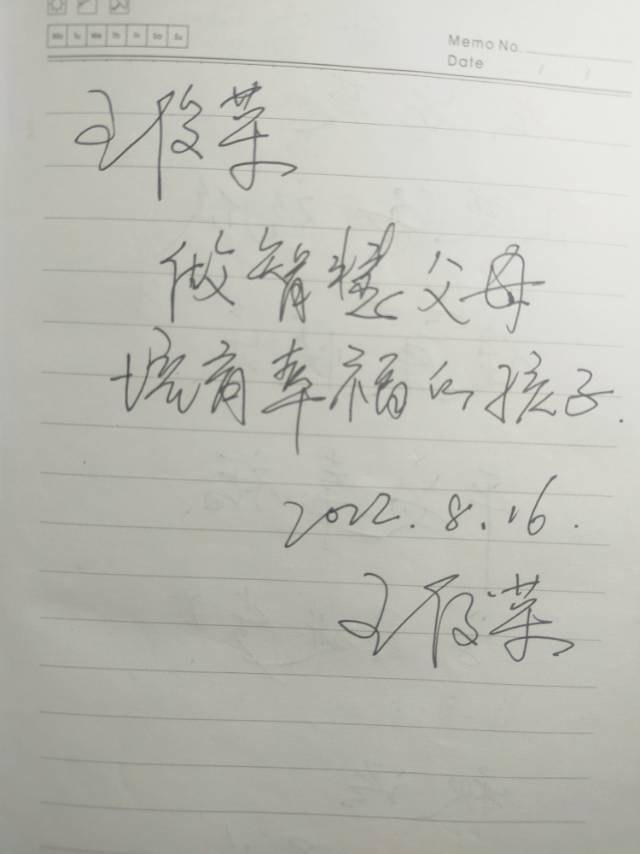 Mo Tu We Th Fr Sa Su
Memo No.
Date / /
王俊荣
做智慧父母
培育幸福的孩子.
2022.8.16.
王俊荣